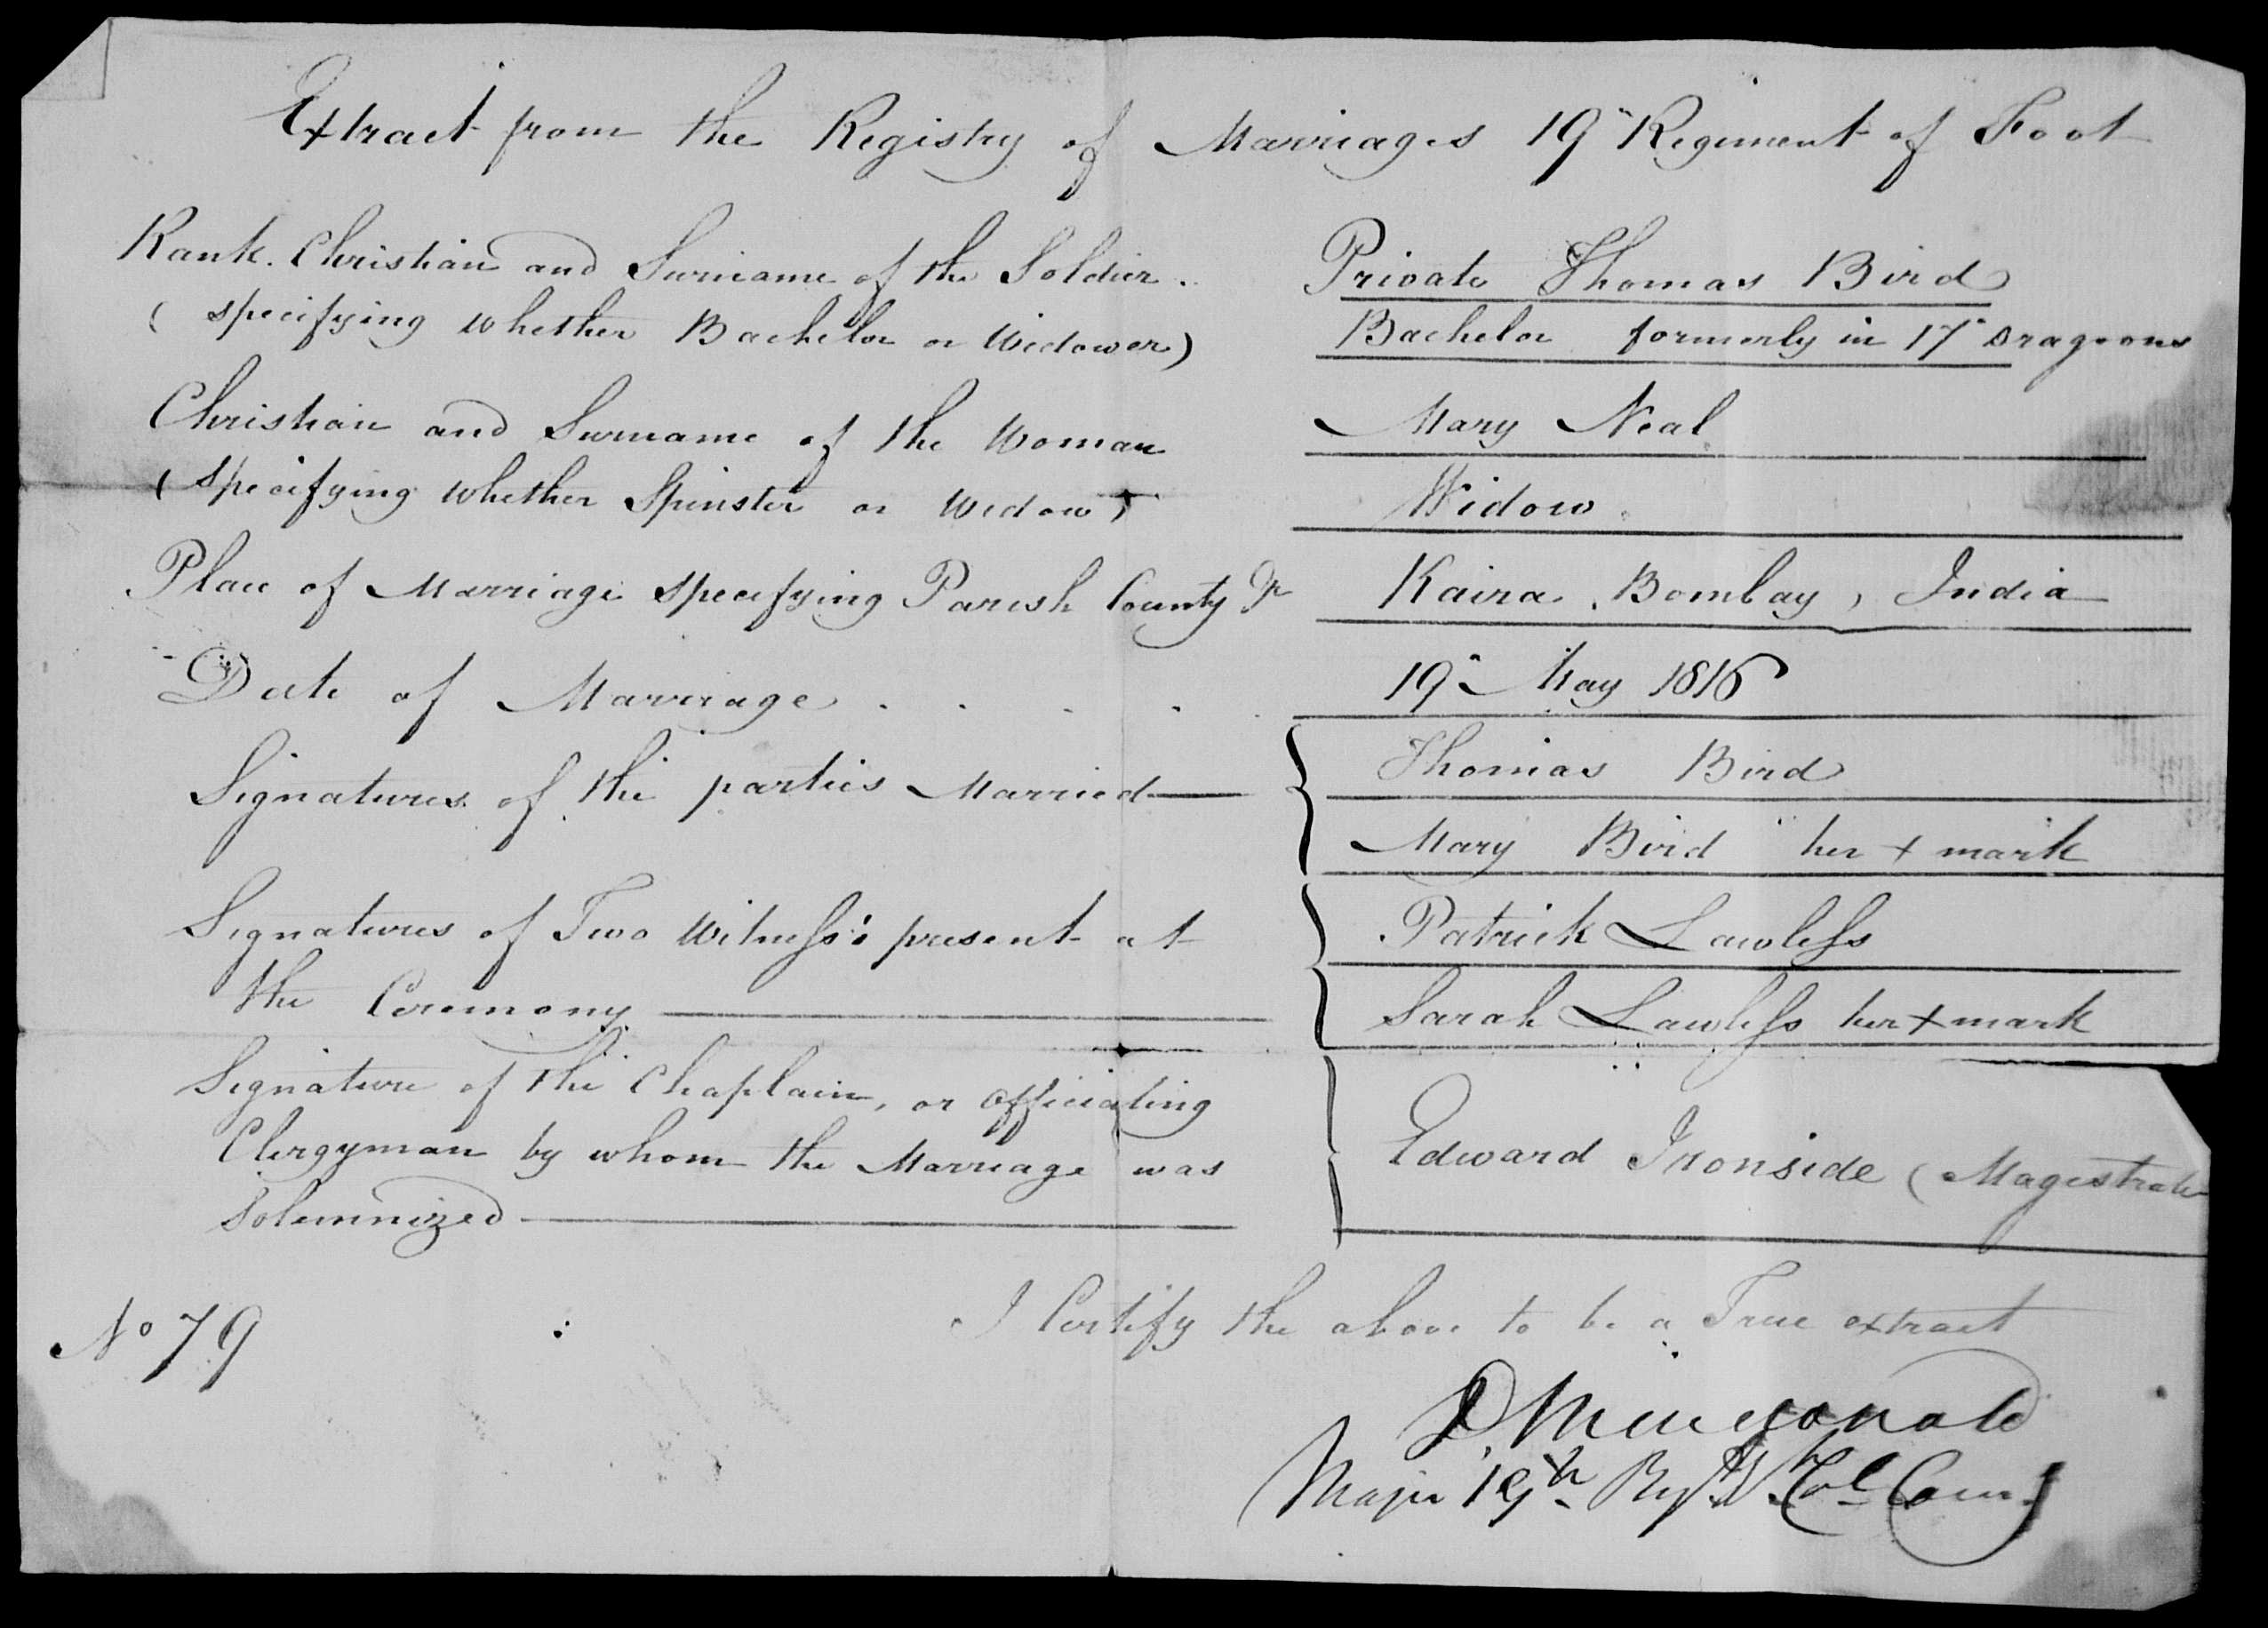 Extract from the Registry of Marriages 19" Regiment of Foot
Rank. Christian and Surname of the Soldier. Private Thomas Bird
(specifying whether Bachelor or Widower) Bachelor formerly in 17" Dragoons
Christian and Surname of the Woman Mary Neal
(specifying whether Spinster or Widow) Widow
Place of Marriage specifying Parish County &c Kaira, Bombay, India
Date of Marriage . . . . . 19" May 1816
Signatures of the parties Married— Thomas Bird
Mary Bird her + mark
Signatures of Two Witness's present at Patrick Lawless
the Ceremony — Sarah Lawless her + mark
Signature of the Chaplain, or officiating
Clergyman by whom the Marriage was Edward Ironside (Magistrate
Solemnized —
I Certify the above to be a True extract
No 79
Major 19th Regt Col Comg